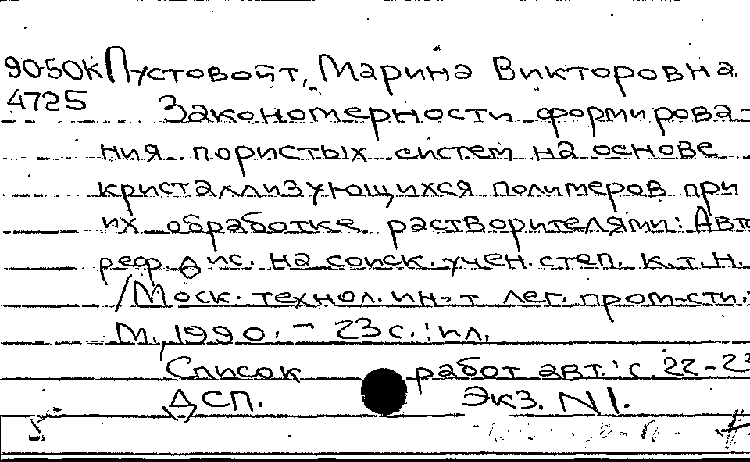 90-50К Пустовойт, Марина Викторовна.
4725 Закономерности формирова-
ния пористых систем на основе
кристаллизующихся полимеров при
их обработке растворителями: Авто
реф. дис. на соиск. учен. степ. к.т.н.
/Моск. технол. ин-т лег. пром-сти.-
М., 1990. - 23 с.: ил.
Список работ авт.: с. 22-23
ДСП. Экз. N1.